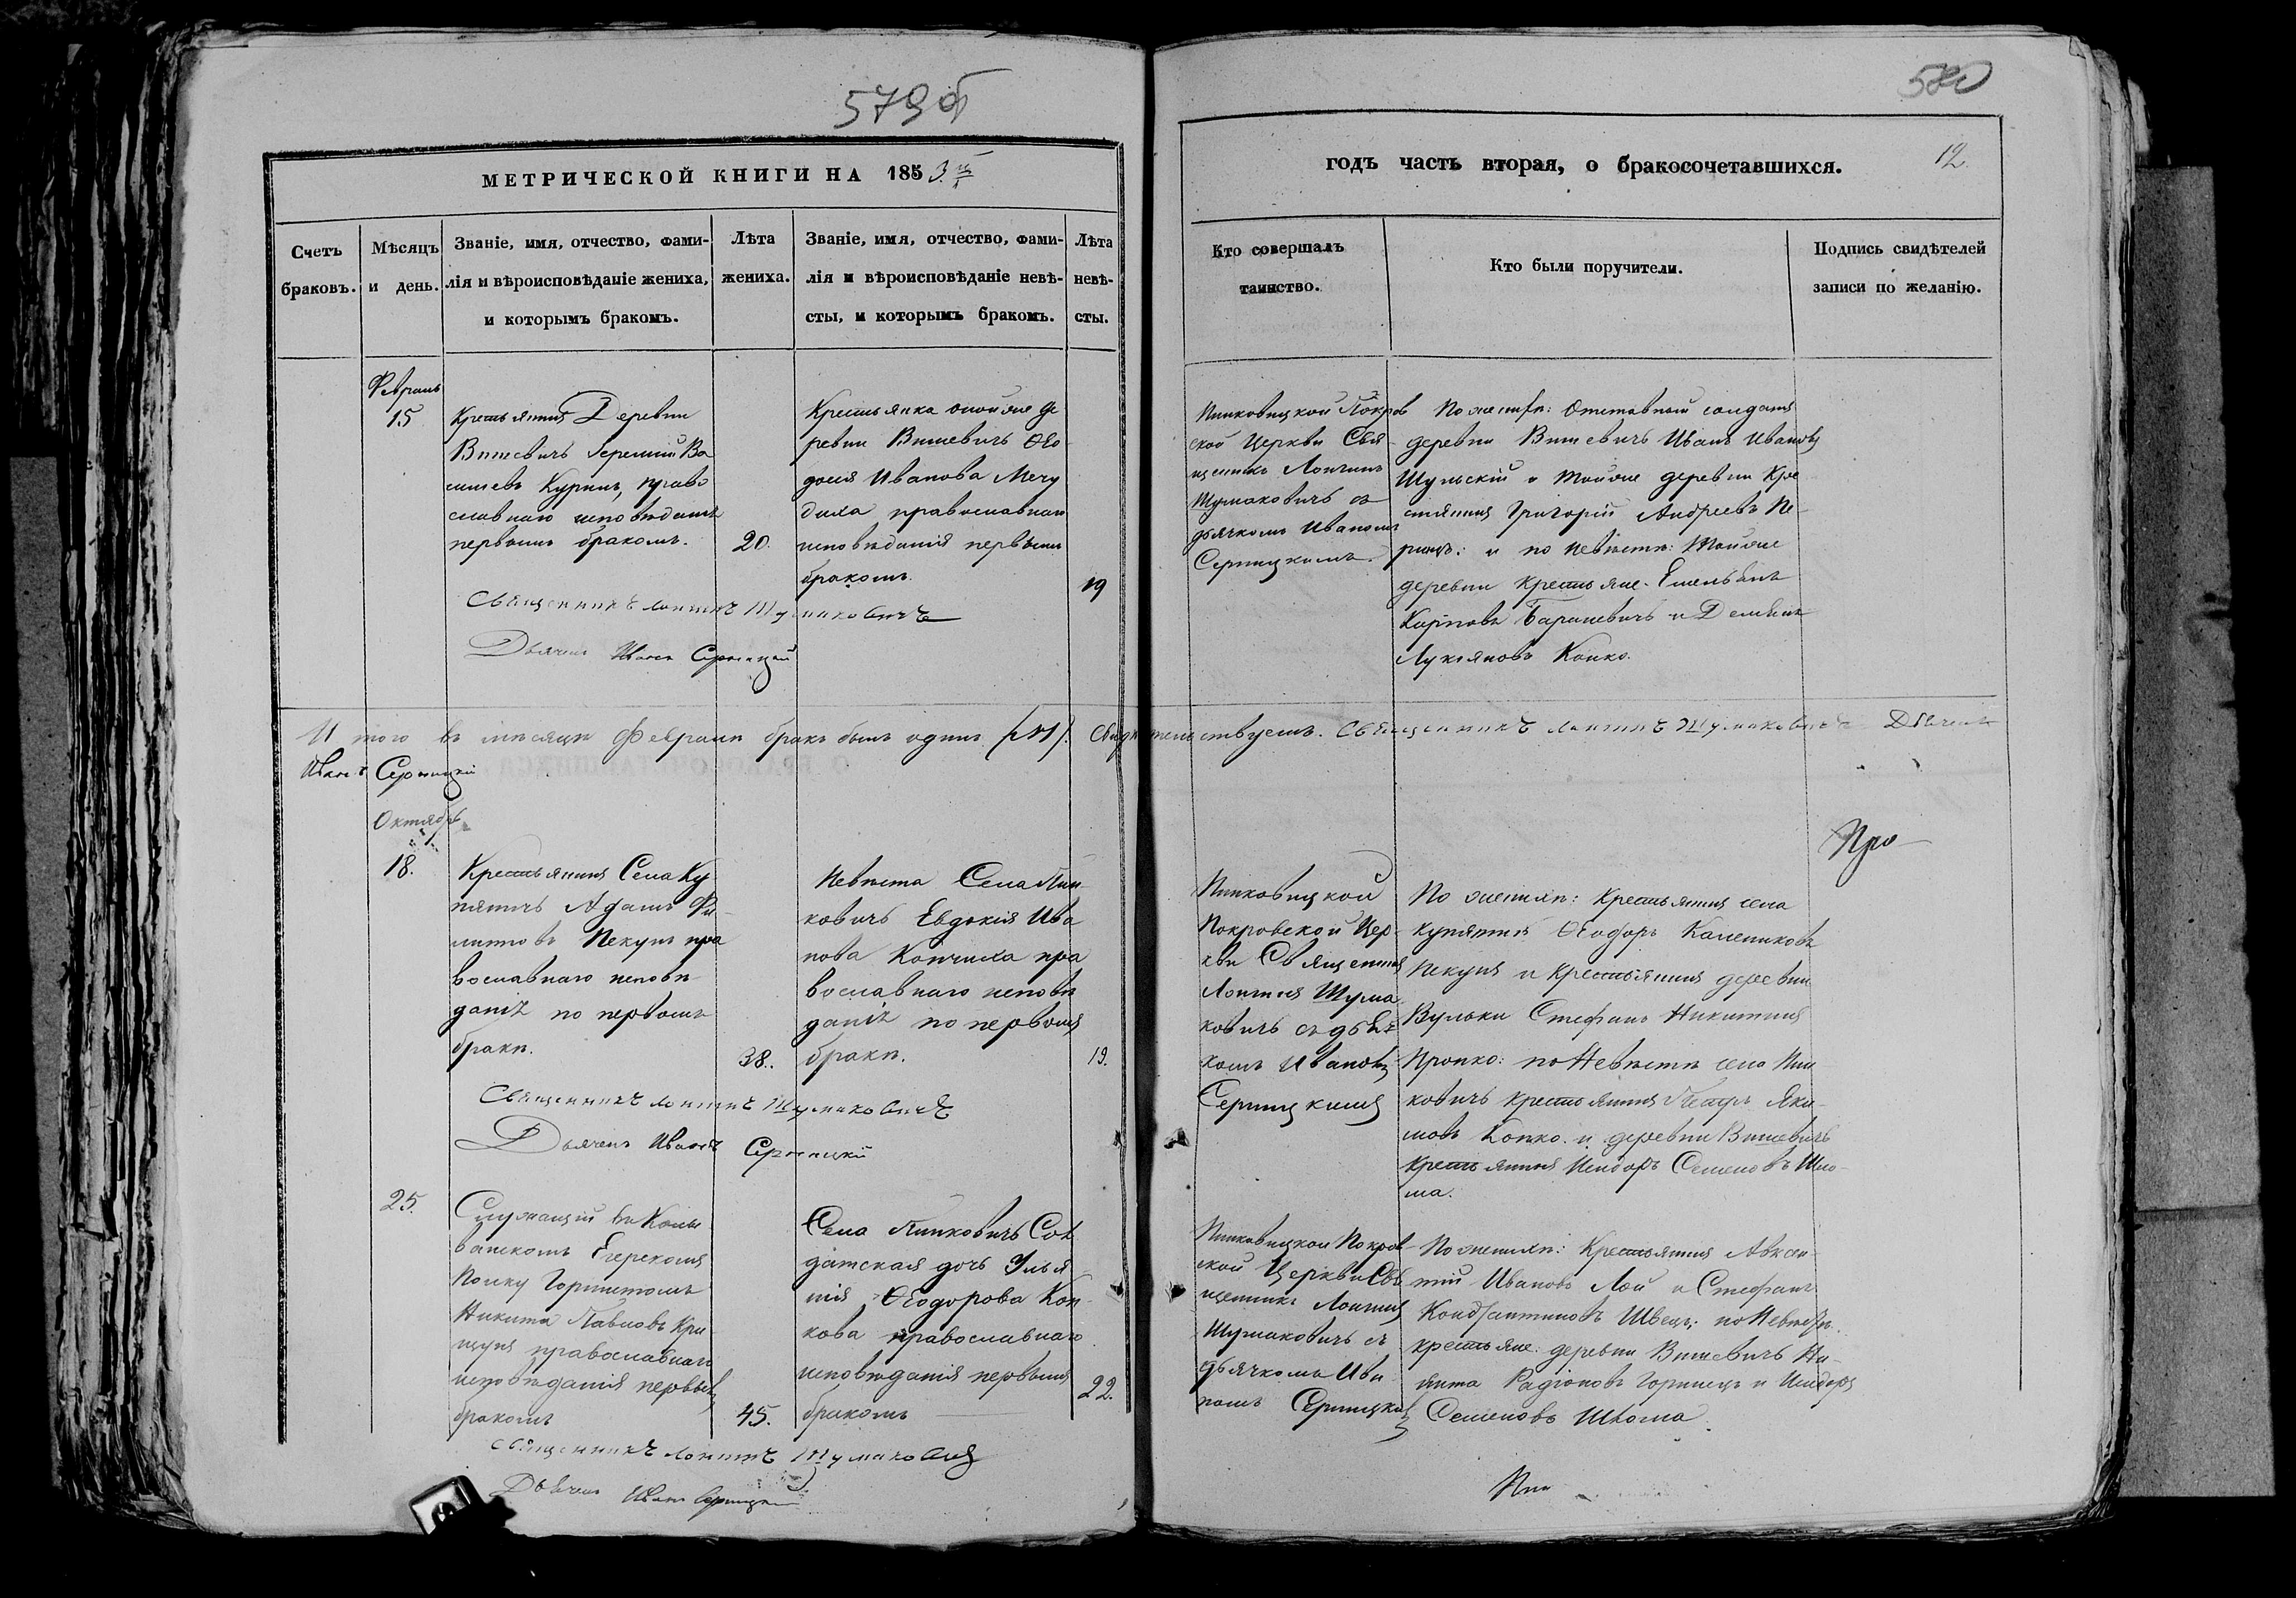 579об
580
МЕТРИЧЕСКОЙ КНИГИ НА 1853й
годъ часть вторая, о бракосочетавшихся.
12.
Счетъ
браковъ.
Мѣсяцъ
и день.
Званіе, имя, отчество, фами-
лія и вѣроисповѣданіе жениха,
и которымъ бракомъ.
Лѣта
жениха.
Званіе, имя, отчество, фами-
лія и вѣроисповѣданіе невѣ-
сты, и которымъ бракомъ.
Лѣта
невѣ-
сты.
Кто совершалъ
таинство.
Кто были поручители.
Подпись свидѣтелей
записи по желанію.
Февраль
15
Крестьянинъ Деревни
Вишевичь Іеремій Ва
сильевъ Куринъ, право
славнаго исповѣданія
первымъ бракомъ.
20.
Крестьянка оной же де
ревни Вишевичь Ѳео
досія Иванова
православнаго
исповѣданія первымъ
бракомъ.
19
Пинковицкой Покров
ской Церкви Свя-
щенникъ Лонгинъ
Шумаковичь съ
дьячкомъ Иваномъ
Серницкимъ.
По женихѣ: Отставный солдатъ
деревни Вишевичь Иванъ Ивановъ
Шульскій и той же деревни Кре
стянинъ Григорій Андреевъ
и по невѣстѣ: Той же
деревни крестьяне Емельянъ
Карповъ Бараневичь и Демьянъ
Лукіяновъ Копко.
Священникъ Лонгинъ Шумаковичъ
Дьячекъ Иванъ Серницкій
И того въ мѣсяцѣ Февралѣ бракъ былъ одинъ (№1). Свидѣтельствуемъ. Священникъ Лонгинъ Шумаковичъ Дьячекъ
Иванъ Серницкій
Октябрь
Про-
18.
Крестьянинъ Села Ку
пятичь Адамъ Фи-
липповъ Пекунъ пра
вославнаго исповѣ
данія по первомъ
бракѣ.
38.
Невѣста Села Пин-
ковичь Евдокія Ива
нова Копчиха пра
вославнаго исповѣ
данія по первомъ
бракѣ.
19.
Пинковицкой
Покровской Цер-
кви Священникъ
Лонгинъ Шума
ковичь съ дьяч
комъ Иваномъ
Серницкимъ
По женихѣ: Крестьянинъ села
Купятичь Ѳеодоръ Калениковъ
Пекунъ и Крестьянинъ деревни
Вульки Стефанъ Никитинъ
Пропко: по Невѣстѣ села Пин
ковичь крестьянинъ Петръ Яки-
мовъ Копко и деревни Вишевичь
крестьянинъ Исидоръ Семеновъ Шло-
ма.
Священникъ Лонгинъ Шумаковичъ
Дьячекъ Иванъ Серницкій
25.
Служащій въ Колы
ванскомъ Егерскомъ
Полку Горнистомъ
Никита Павловъ Кри-
цунъ православнаго
исповѣданія первымъ
бракомъ
45.
Села Пинковичь Сол
датская дочь Улья
нія Ѳеодорова Коп-
кова православнаго
исповѣданія первымъ
бракомъ
22.
Пинковицкой Покров-
ской Церкви Свя
щенникъ Лонгинъ
Шумаковичь съ
дьячкомъ Ива
номъ Серницкимъ
По женихѣ: Крестьянинъ Авксен-
тій Ивановъ Лой и Стефанъ
Константиновъ Швецъ; по Невѣстѣ
крестьяне деревни Вишевичь Ни-
кита Радіоновъ Горинецъ и Исидоръ
Семеновъ Шлома.
Священникъ Лонгинъ Шумаковичъ
Дьячекъ Иванъ Серницкій